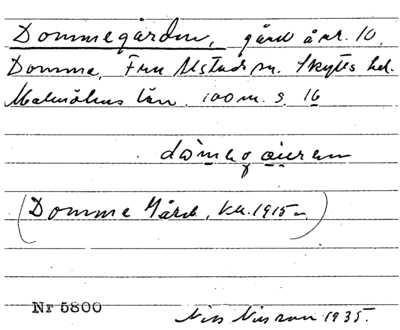 Dommegården, gård å nr. 10,
Domme, Fru Alstads sn. Skytts hd.
Malmöhus län. 100 m. S. 16
(Domme Gård, kll. 1915)
Nr 5800
Nils Nilsson 1935.